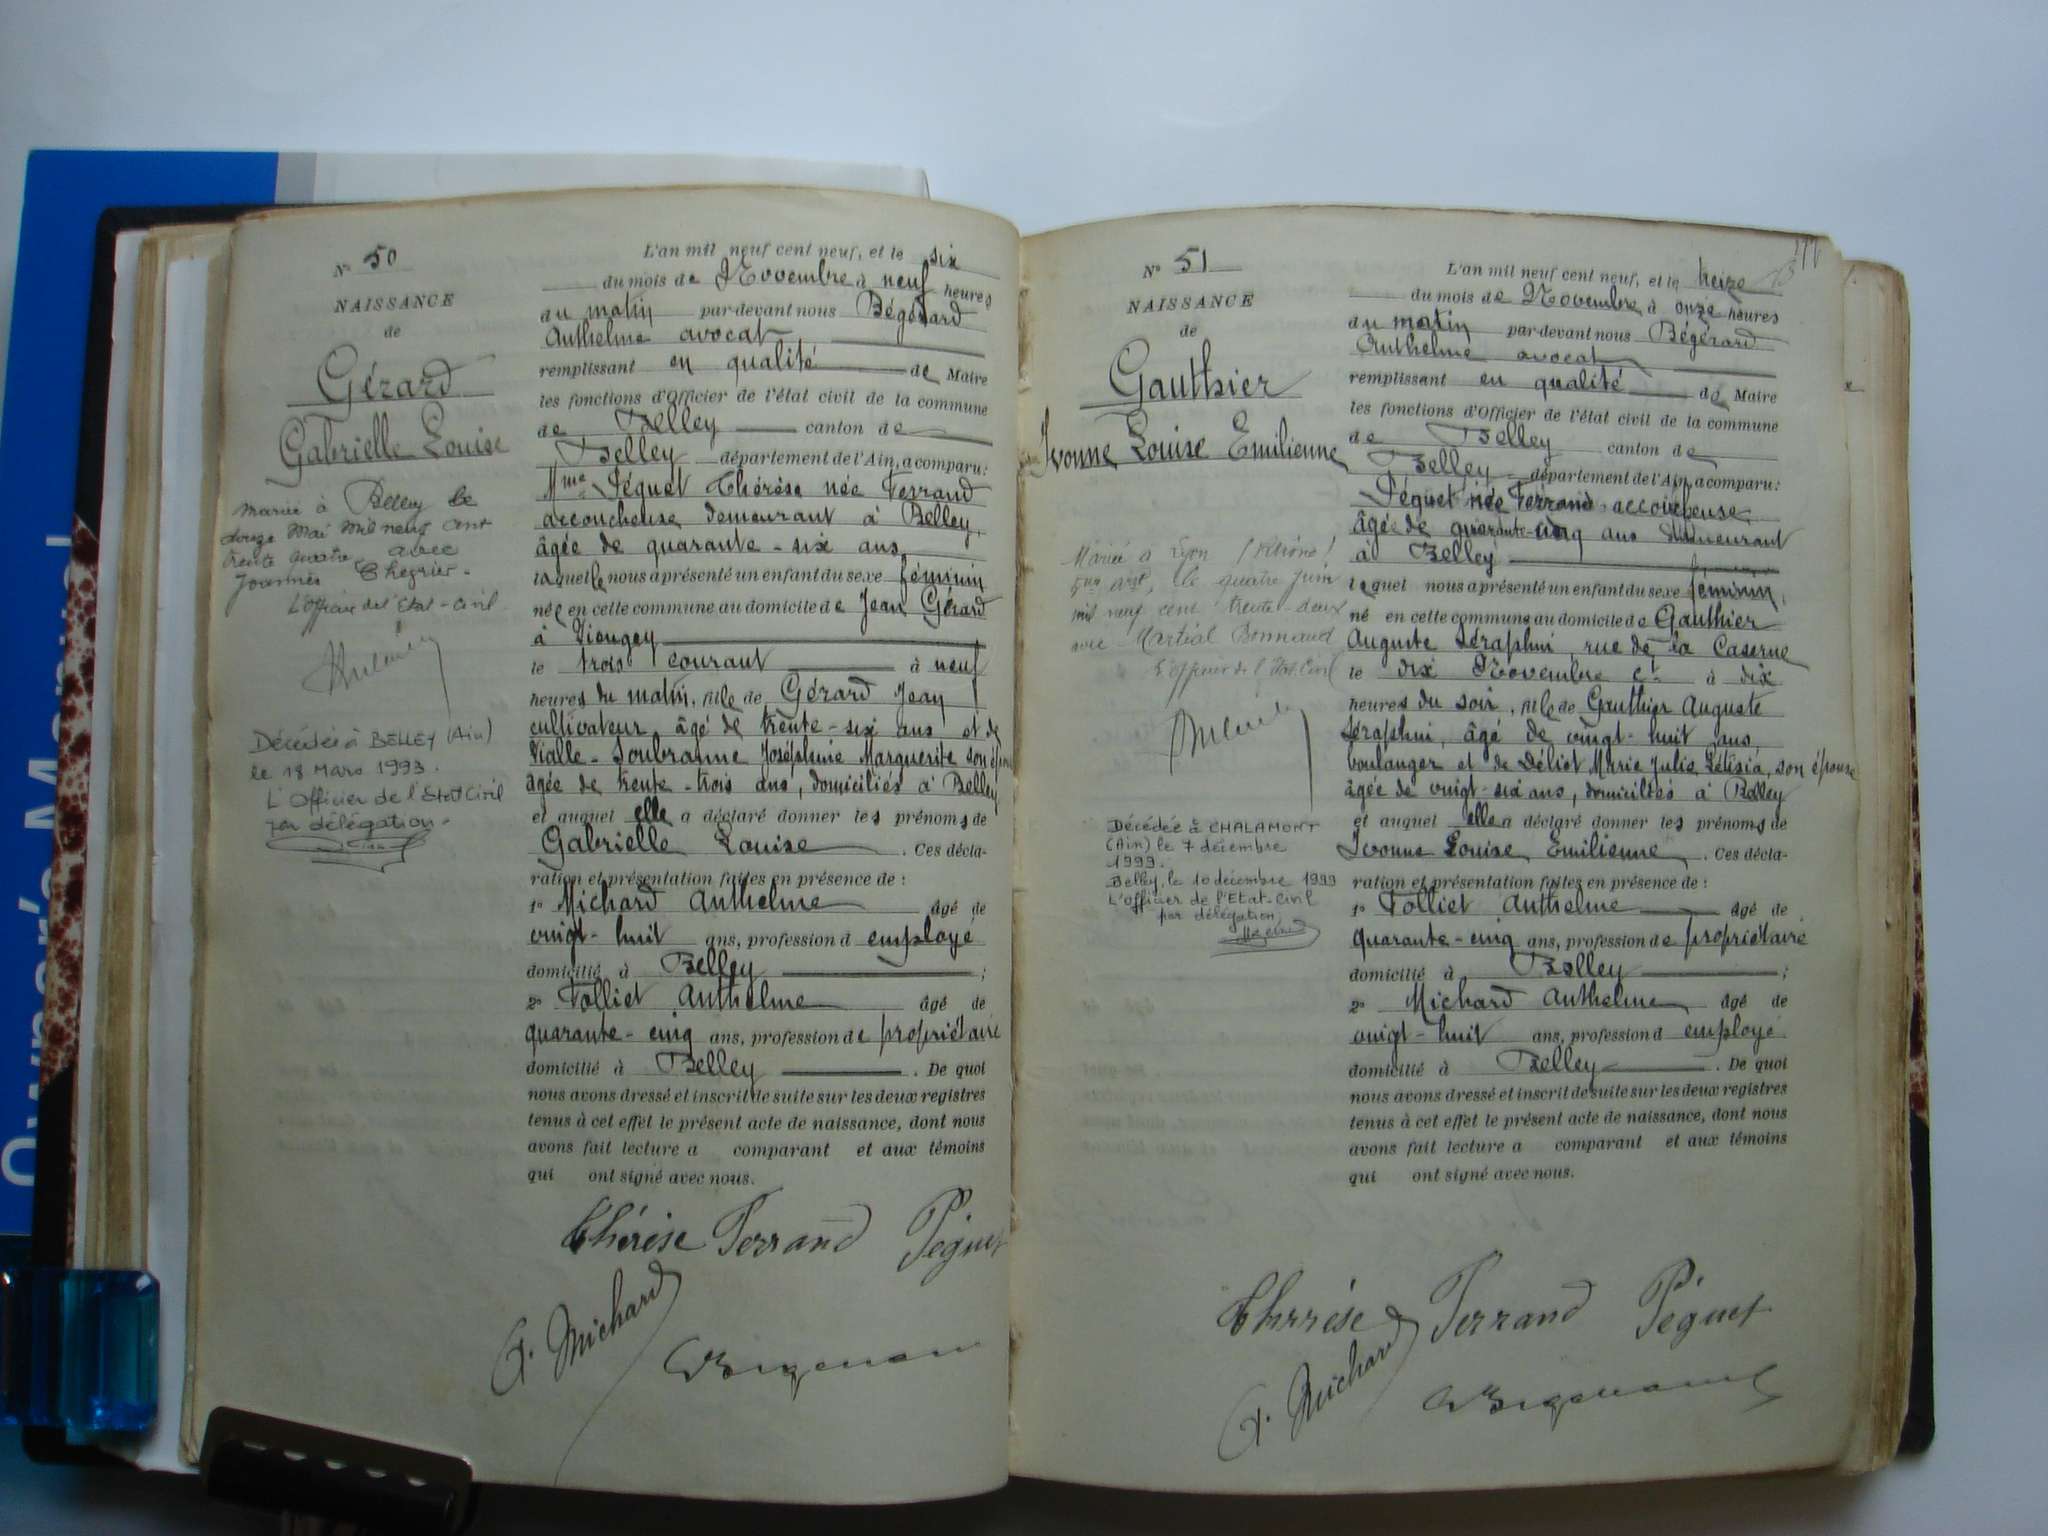 N° 50
NAISSANCE
de
Gérard
Gabrielle Louise
Mariée à Belley le
douze Mai mil neuf cent
trente quatre avec
Joannès
L'officier de l'Etat-Civil
Décédée à BELLEY (Ain)
le 18 Mars 1993.
L'Officier de l'Etat Civil
par délégation.
L'an mil neuf cent neuf, et le six
du mois de Novembre à neuf heures
du matin par-devant nous Bégérard
Anthelme avocat
remplissant en qualité de Maire
les fonctions d'Officier de l'état civil de la commune
de Belley canton de
Belley département de l'Ain, a comparu:
Mme Péguet Thérèse née Ferrand
accoucheuse demeurant à Belley,
âgée de quarante-six ans
laquelle nous a présenté un enfant du sexe féminin
née en cette commune au domicile de Jean Gérard
à
le trois courant à neuf
heures du matin, fille de Gérard Jean
cultivateur, âgé de trente-six ans et de
Vialle-Soubranne Joséphine Marguerite son
âgée de trente-trois ans, domiciliés à Belley
et auquel elle a déclaré donner les prénoms de
Gabrielle Louise. Ces décla-
ration et présentation faites en présence de:
1° Michard Anthelme âgé de
vingt-huit ans, profession d employé
domicilié à Belley;
2° Folliet Anthelme âgé de
quarante-cinq ans, profession de propriétaire
domicilié à Belley. De quoi
nous avons dressé et inscrit de suite sur les deux registres
tenus à cet effet le présent acte de naissance, dont nous
avons fait lecture a comparant et aux témoins
qui ont signé avec nous.
Thérèse Ferrand Péguet
A. Michard
N° 51
NAISSANCE
de
Gauthier
Ivonne Louise Emilienne
Mariée à Lyon (Rhône)
5me arrt, le quatre juin
mil neuf cent trente-deux
avec Martial Bonnaud
L'officier de l'Etat Civil
Décédée à CHALAMONT
(Ain) le 7 décembre
1999.
Belley, le 10 décembre 1999
L'Officier de l'Etat-Civil
par délégation,
L'an mil neuf cent neuf, et le treize
du mois de Novembre à onze heures
du matin par-devant nous Bégérard
Anthelme avocat
remplissant en qualité de Maire
les fonctions d'Officier de l'état civil de la commune
de Belley canton de
Belley département de l'Ain, a comparu:
Péguet née Ferrand accoucheuse
âgée de quarante-cinq ans demeurant
à Belley
lequel nous a présenté un enfant du sexe féminin,
né en cette commune au domicile de Gauthier
Auguste Séraphin, rue de la Caserne
le dix Novembre ct à dix
heures du soir, fille de Gauthier Auguste
Séraphin, âgé de vingt-huit ans,
boulanger et de Déliot Marie Julie Létisia, son épouse
âgée de vingt-six ans, domiciliés à Belley
et auquel elle a déclaré donner les prénoms de
Ivonne Louise Emilienne. Ces décla-
ration et présentation faites en présence de:
1° Folliet Anthelme âgé de
quarante-cinq ans, profession de propriétaire
domicilié à Belley;
2° Michard Anthelme âgé de
vingt-huit ans, profession d employé
domicilié à Belley. De quoi
nous avons dressé et inscrit de suite sur les deux registres
tenus à cet effet le présent acte de naissance, dont nous
avons fait lecture a comparant et aux témoins
qui ont signé avec nous.
Thérèse Ferrand Péguet
A. Michard